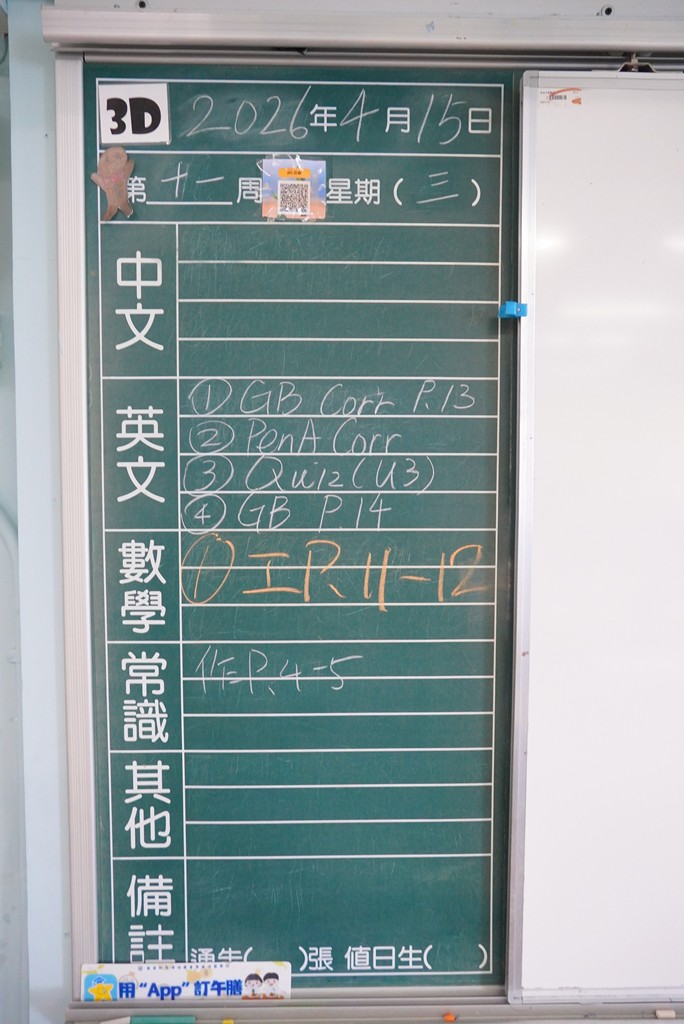 3D 2026年4月15日
第十一周 星期(三)
中文
英文
① GB Corr P.13
② PenA Corr
③ Quiz(U3)
④ GB P.14
數學
① 工P.11-12
常識
作P.4-5
其他
備註
通告( )張 值日生( )
用“App”訂午膳